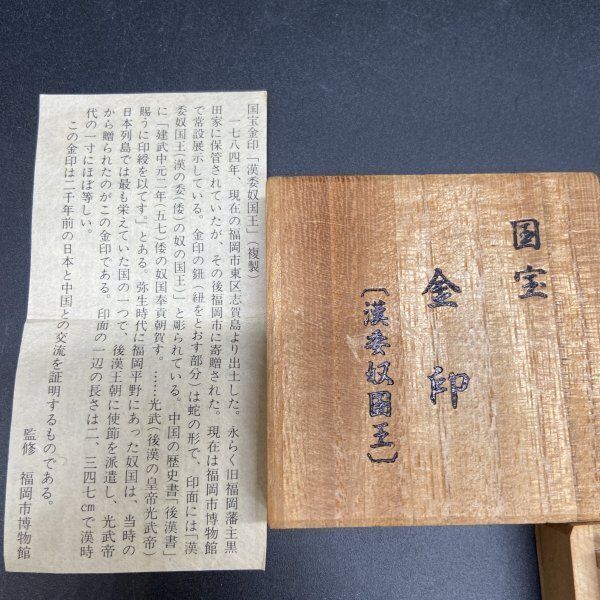 国宝金印「漢委奴国王」（複製）
一七八四年、現在の福岡市東区志賀島より出土した。永らく旧福岡藩主黒
田家に保管されていたが、その後福岡市に寄贈された。現在は福岡市博物館
で常設展示している。金印の鈕（紐をとおす部分）は蛇の形で、印面には「漢
委奴国王（漢の委（倭）の奴の国王）」と彫られている。中国の歴史書「後漢書」
に「建武中元二年（五七）倭の奴国奉貢朝賀す。……光武（後漢の皇帝光武帝）
賜うに印綬を以てす』とある。弥生時代に福岡平野にあった奴国は、当時の
日本列島では最も栄えていた国の一つで、後漢王朝に使節を派遣し、光武帝
から贈られたのがこの金印である。印面の一辺の長さは二、三四七cmで漢時
代の一寸にほぼ等しい。
この金印は二千年前の日本と中国との交流を証明するものである。
監修　福岡市博物館
国宝
金印
〔漢委奴國王〕